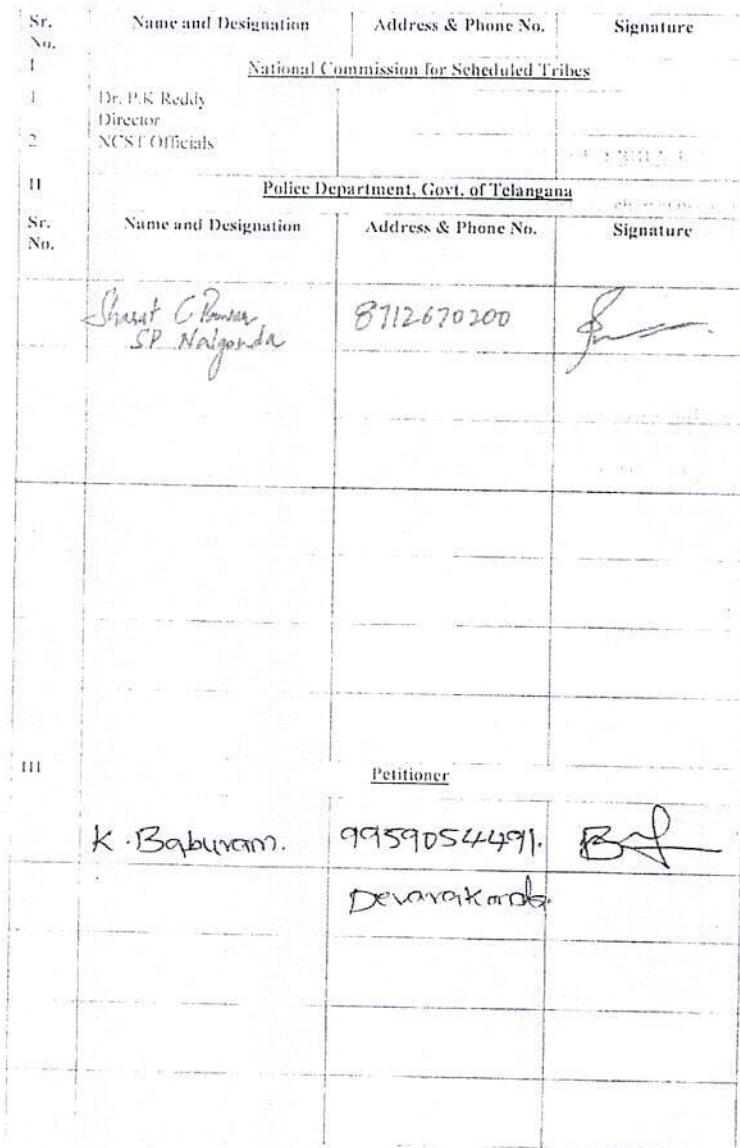 Sr. No. Name and Designation Address & Phone No. Signature
I National Commission for Scheduled Tribes
1 Dr. P.K Reddy
Director
2 NCST Officials
II Police Department, Govt. of Telangana
Sr. No. Name and Designation Address & Phone No. Signature
Sharat C Pawar 8712670200
SP Nalgonda
III Petitioner
K. Baburam. 9959054491.
Devarakonda.